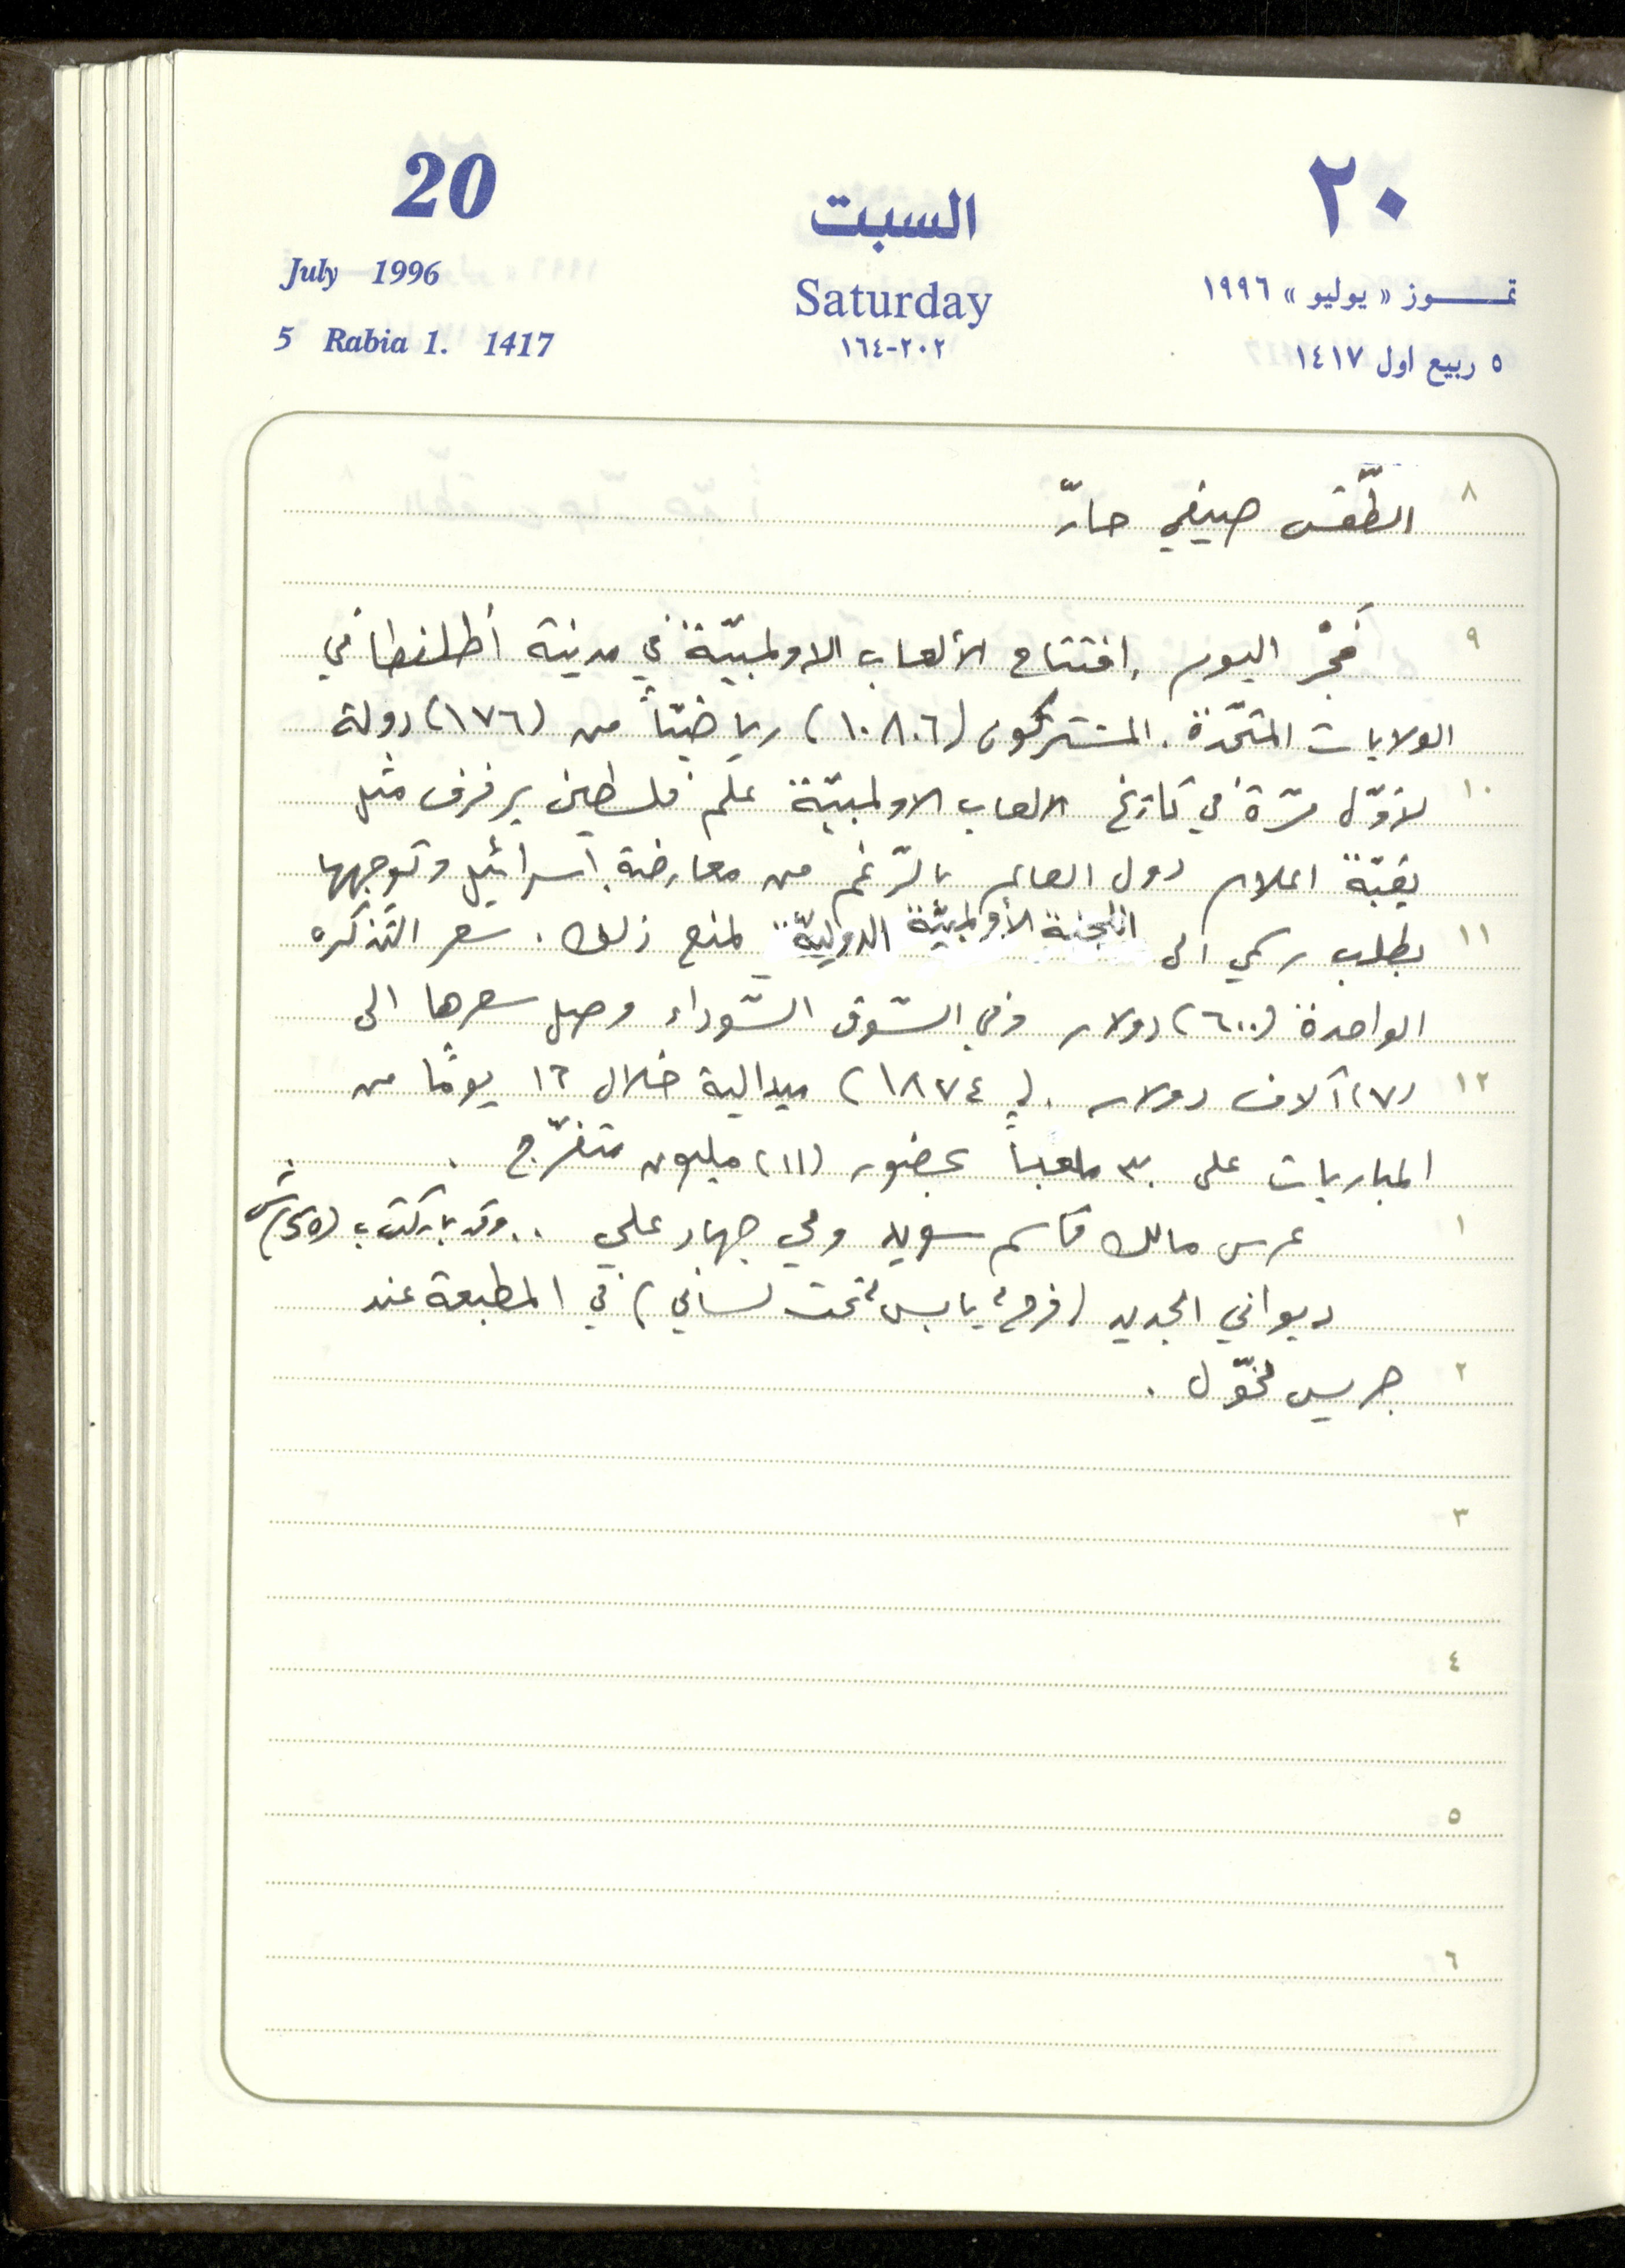 20 السبت ٢٠
July 1996 Saturday تمـــوز « يوليو » ١٩٩٦
5 Rabia 1. 1417 ١٦٤-٢٠٢ ٥ ربيع اول ١٤١٧
٨ الطّقس صيفي حارّ
٩ فَجْرَ اليوم افتتاح الألعاب الاولمبيّة في مدينة أطلنطا في
الولايات المتحّدة. المشتركون (١٠٨٠٦) رياضيّاً من (١٧٦) دولة
١٠ لأوّل مرّة في تاريخ الالعاب الاولمبيّة علم فلسطين يرفرف مثل
بقيّة اعلام دول العالم بالرّغم من معارضة اسرائيل وتوجهها
١١ بطلب رسمي الى اللجنة الأولمبيّة الدوليّة لمنع ذلك. سعر التّذكره
الواحدة (٦٠٠) دولار وفي السّوق السّوداء وصل سعرها الى
١٢ (٧) آلاف دولار. (١٨٧٤) ميدالية خلال ١٦ يومًا من
المباريات على ٣٠ ملعباً بحضور (١١) مليون متفرّج .
١ عرس مالك قاسم سويد ومي جهاد علي .. وقد باركت بـ (٢٥٠) ش
ديواني الجديد (فرحٌ يابسٌ تحت لساني) في المطبعة عند
٢ جريس نخّول .
٣
٤
٥
٦